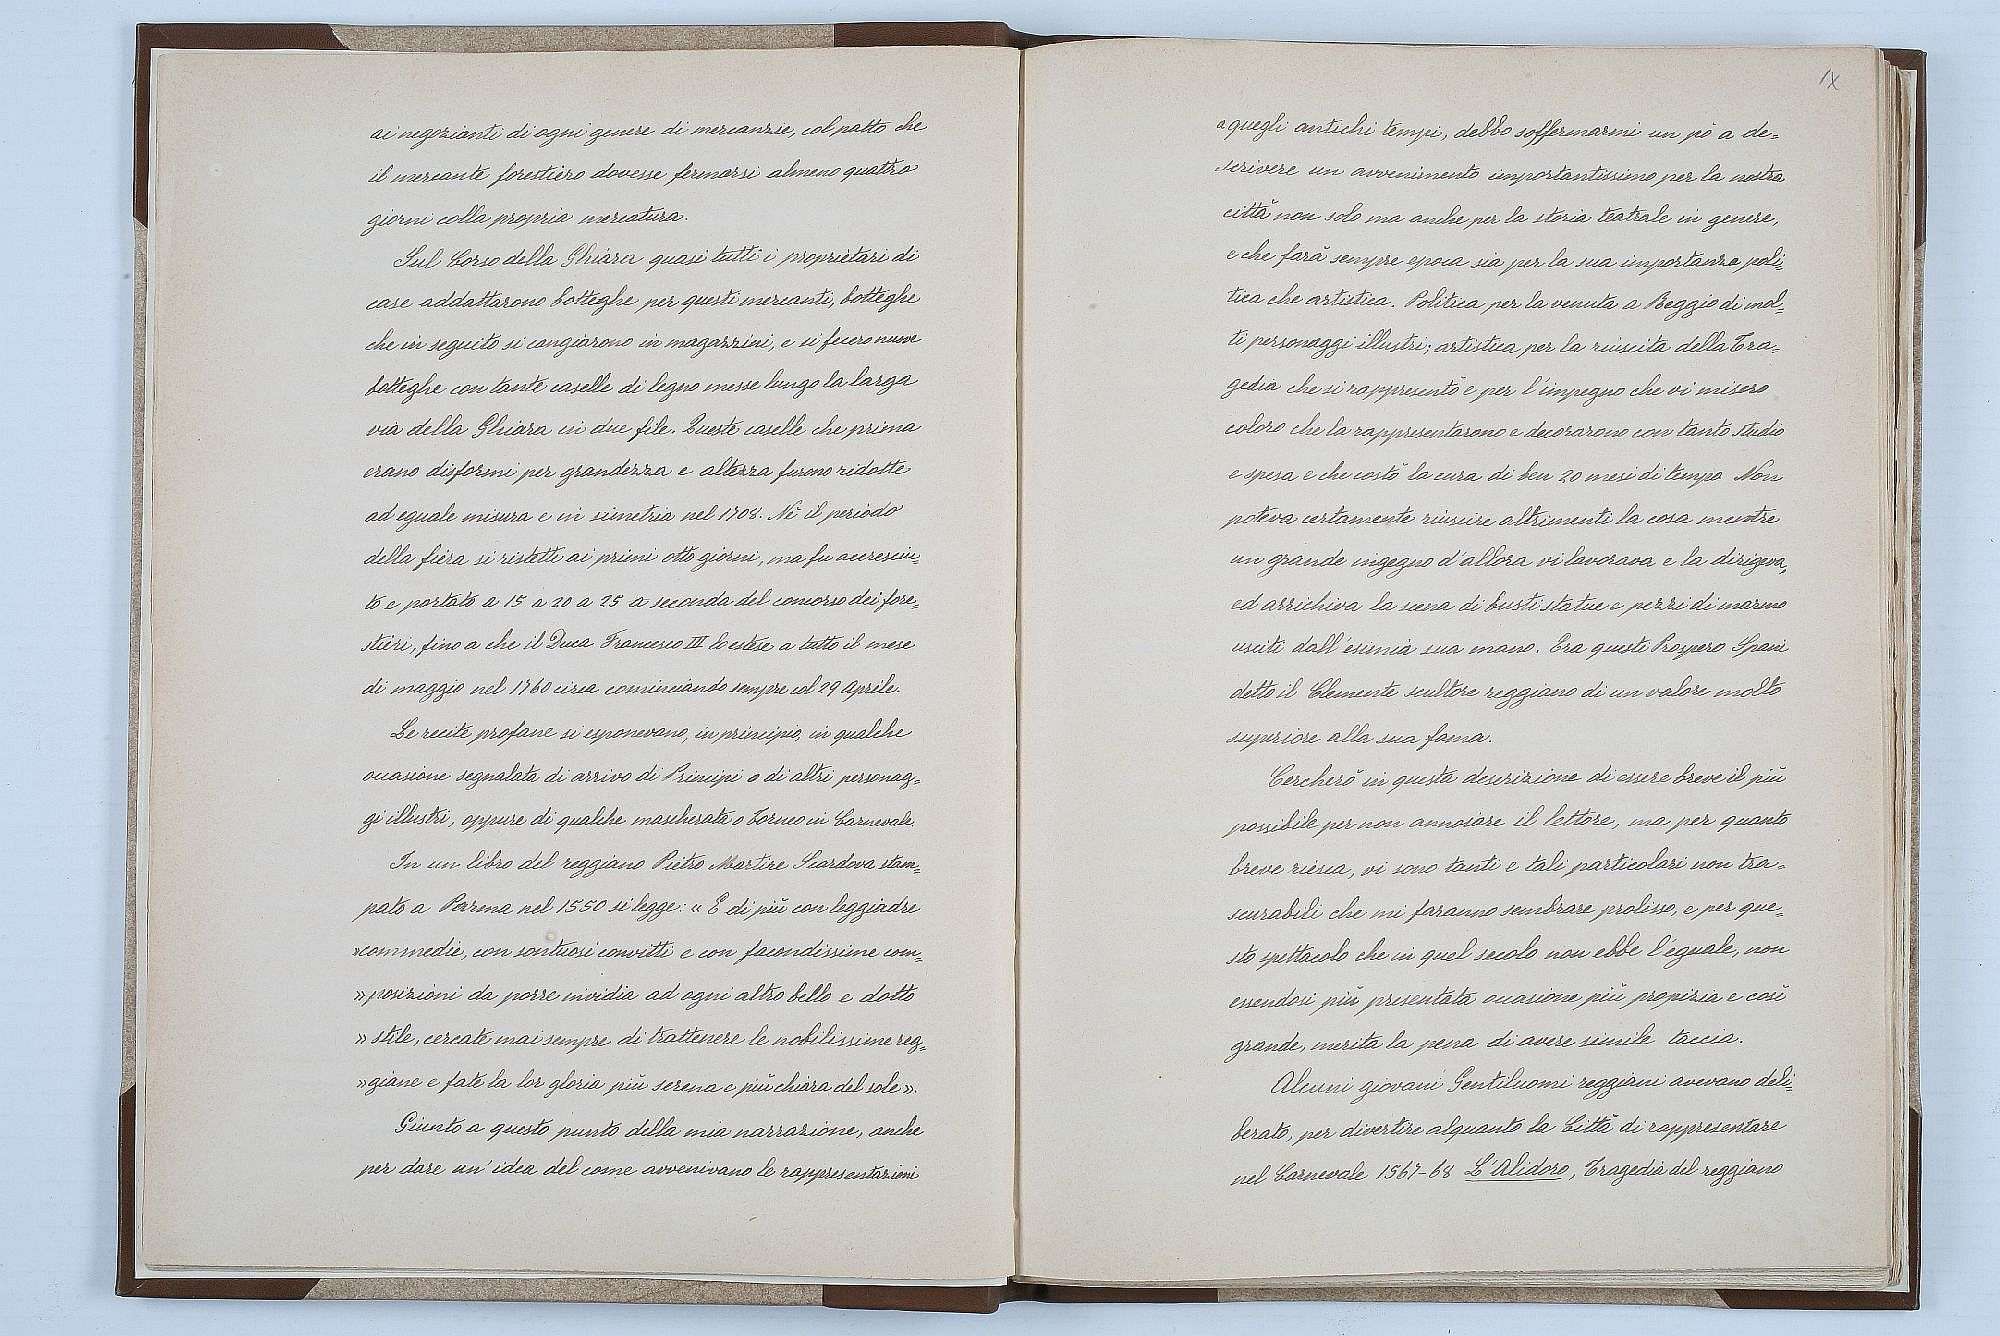 ai negozianti di ogni genere di mercanzie, col patto che
il mercante forestiero dovesse fermarsi almeno quattro
giorni colla propria mercatura.
Sul Corso della Ghiara quasi tutti i proprietari di
case addattarono botteghe per questi mercanti, botteghe
che in seguito si cangiarono in magazzini, e si fecero nuove
botteghe con tante caselle di legno messe lungo la larga
via della Ghiara in due file. Queste caselle che prima
erano disformi per grandezza e altezza furono ridotte
ad eguale misura e in simetria nel 1708. Nè il periodo
della fiera si ristetti ai primi otto giorni, ma fu accresciu=
to e portato a 15 a 20 a 25 a seconda del concorso dei fore=
stieri, fino a che il Duca Francesco III lo estese a tutto il mese
di maggio nel 1760 circa cominciando sempre col 29 Aprile.
Le recite profane si esponevano, in principio, in qualche
occasione segnalata di arrivo di Principi o di altri personag=
gi illustri, oppure di qualche mascherata o Torneo in Carnevale.
In un libro del reggiano Pietro Martire Scardova stam=
pato a Parma nel 1550 si legge: « E di più con leggiadre
»commedie, con sontuosi convitti e con facondissime com=
» posizioni da porre invidia ad ogni altro bello e dotto
» stile, cercate mai sempre di trattenere le nobilissime reg=
» giane e fate la lor gloria più serena e più chiara del sole ».
Giunto a questo punto della mia narrazione, anche
per dare un' idea del come avvenivano le rappresentazioni
IX
a quegli antichi tempi, debbo soffermarmi un pò a de=
scrivere un avvenimento importantissimo per la nostra
città non solo ma anche per la storia teatrale in genere,
e che farà sempre epoca sia per la sua importanza poli=
tica che artistica. Politica per la venuta a Reggio di mol=
ti personaggi illustri; artistica per la riuscita della Tra=
gedia che si rappresentò e per l'impegno che vi misero
coloro che la rappresentarono e decorarono con tanto studio
e spesa e che costò la cura di ben 20 mesi di tempo Non
poteva certamente riuscire altrimenti la cosa mentre
un grande ingegno d'allora vi lavorava e la dirigeva,
ed arrichiva la scena di busti statue e pezzi di marmo
usciti dall'esimia sua mano. Era questi Prospero Spani
detto il Clemente scultore reggiano di un valore molto
superiore alla sua fama.
Cercherò in questa descrizione di essere breve il più
possibile per non annoiare il lettore, ma per quanto
breve riesca, vi sono tanti e tali particolari non tra=
scurabili che mi faranno sembrare prolisso, e per que=
sto spettacolo che in quel secolo non ebbe l'eguale, non
essendosi più presentata occasione più propizia e così
grande, merita la pena di avere simile taccia.
Alcuni giovani Gentiluomi reggiani avevano deli=
berato, per divertire alquanto la Città di rappresentare
nel Carnevale 1567-68 L'Alidoro, Tragedia del reggiano